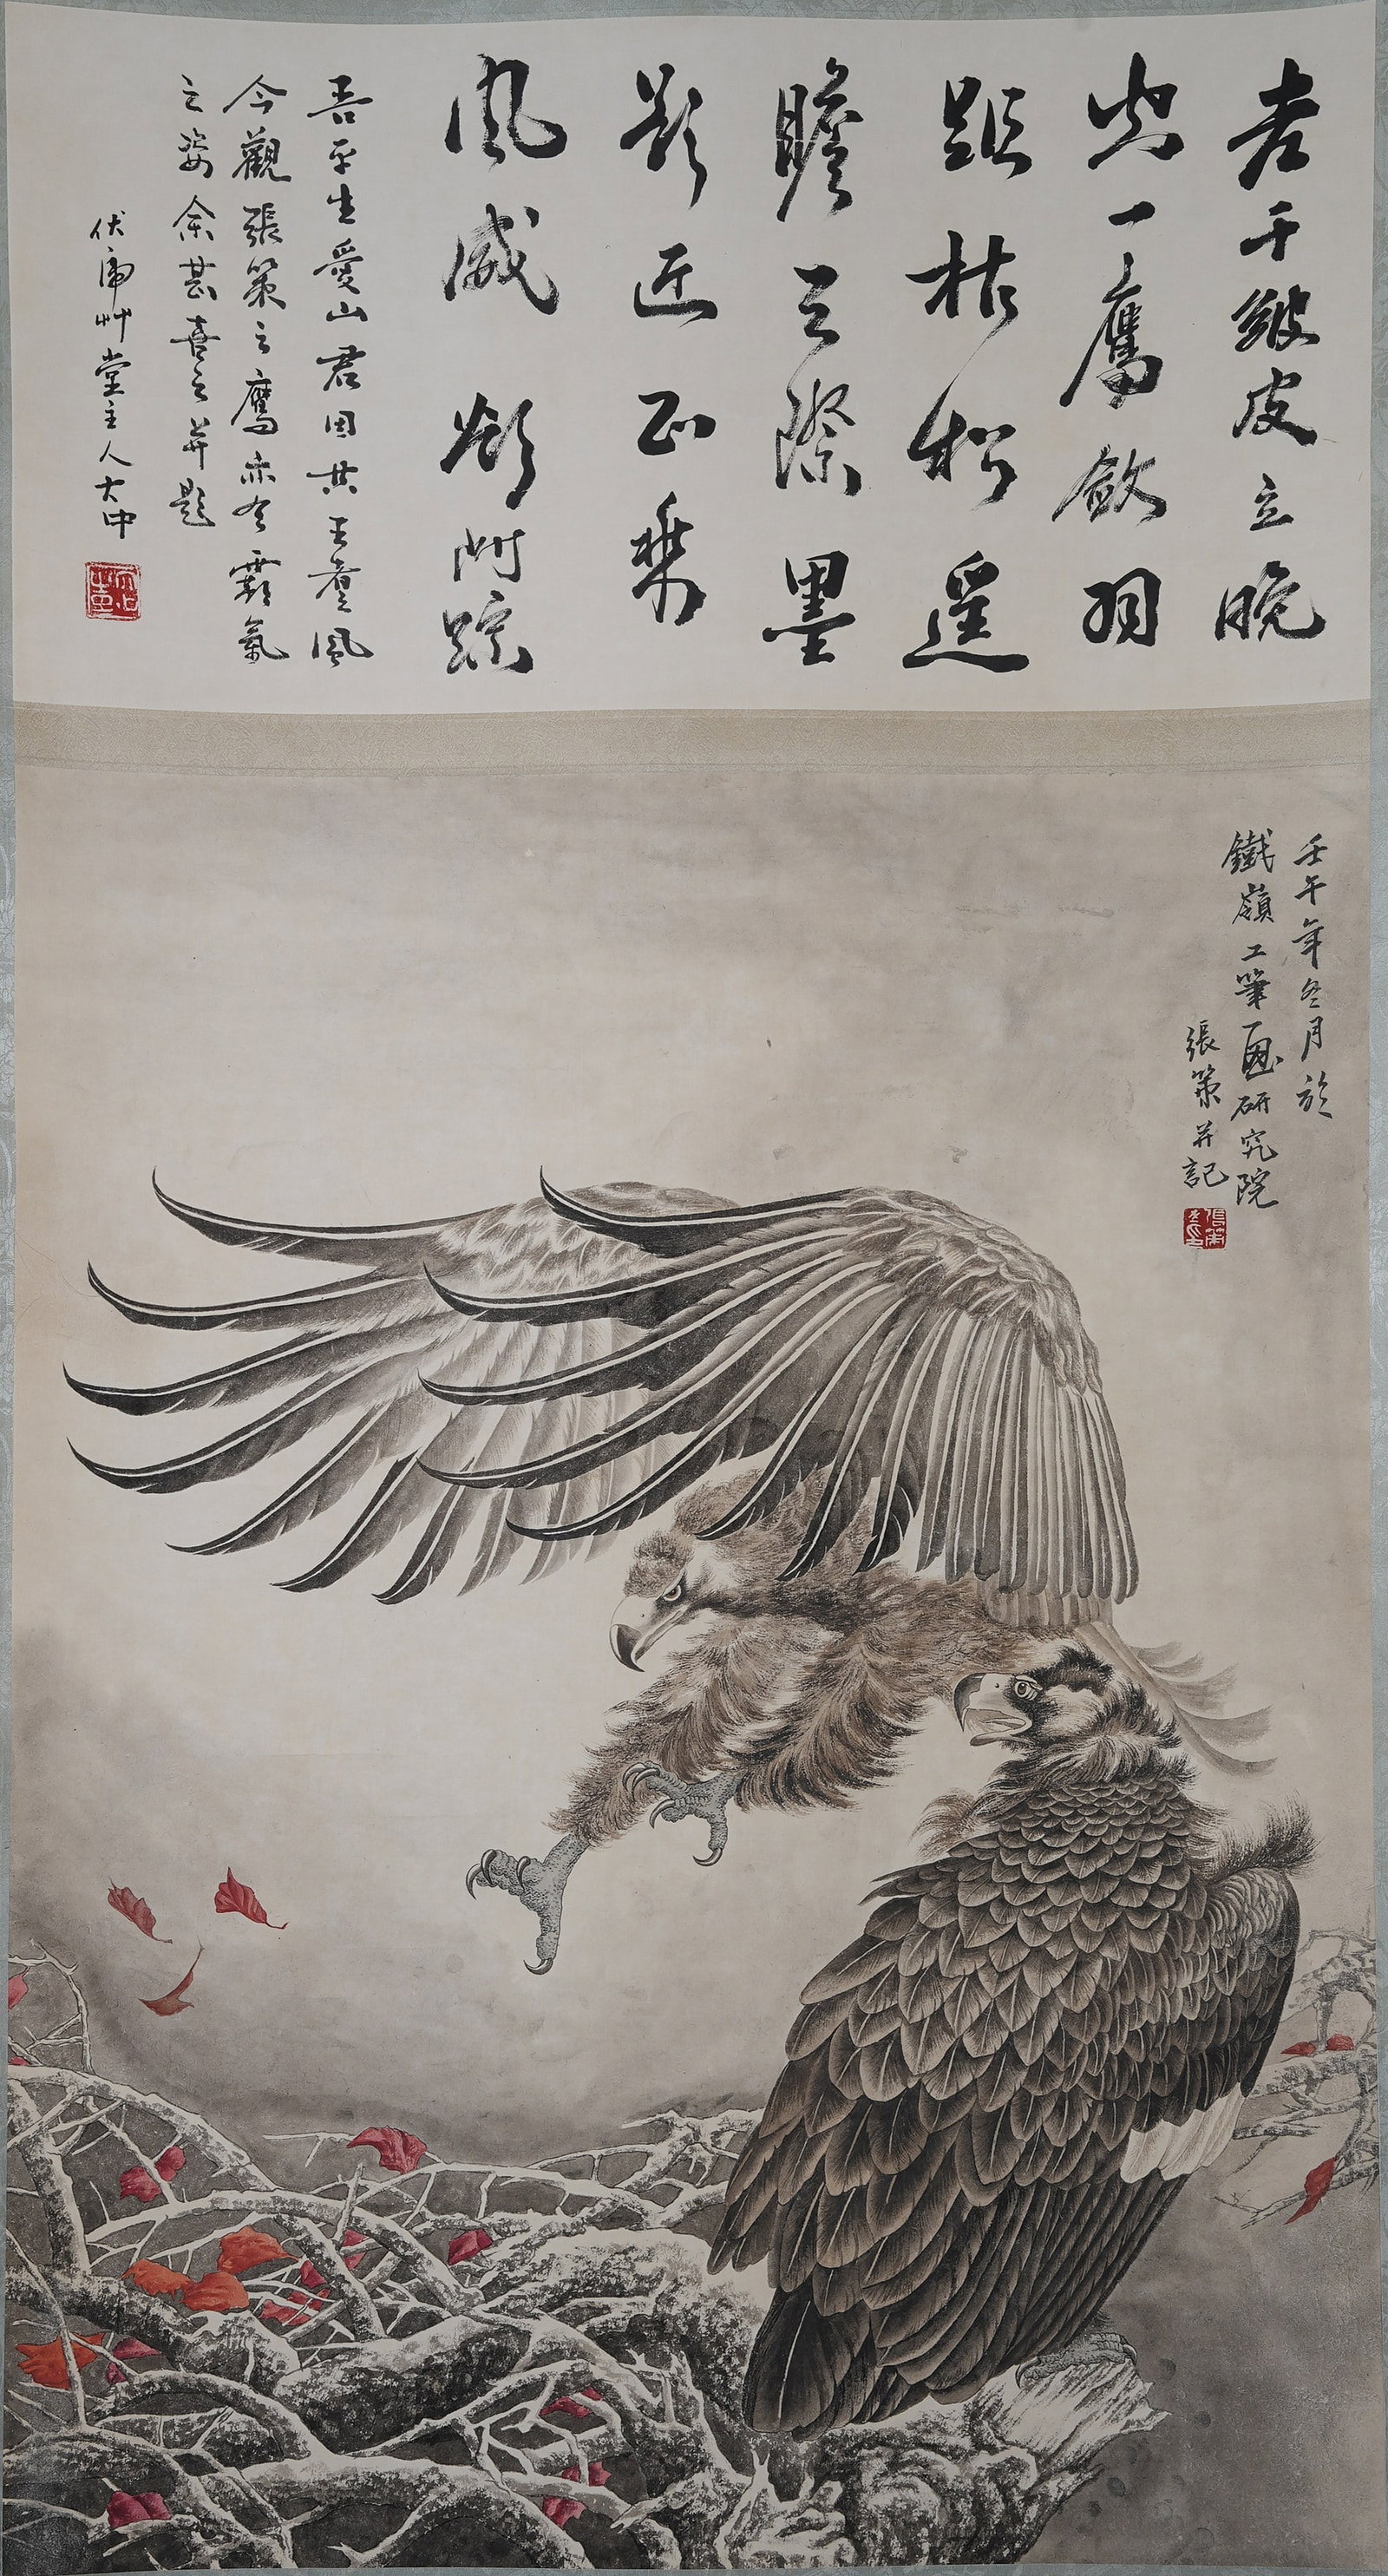 老干皴皮立晚
一鷹斂羽
踞枯松遥
瞻云際墨
影近正乘
風威欲附踪
吾平生愛山君因其王者風
今觀張策之鷹亦有霸氣
之姿余甚喜之并題
伏虎艸堂主人大中
壬午年冬月於
鐵嶺工筆画研究院
張策并記